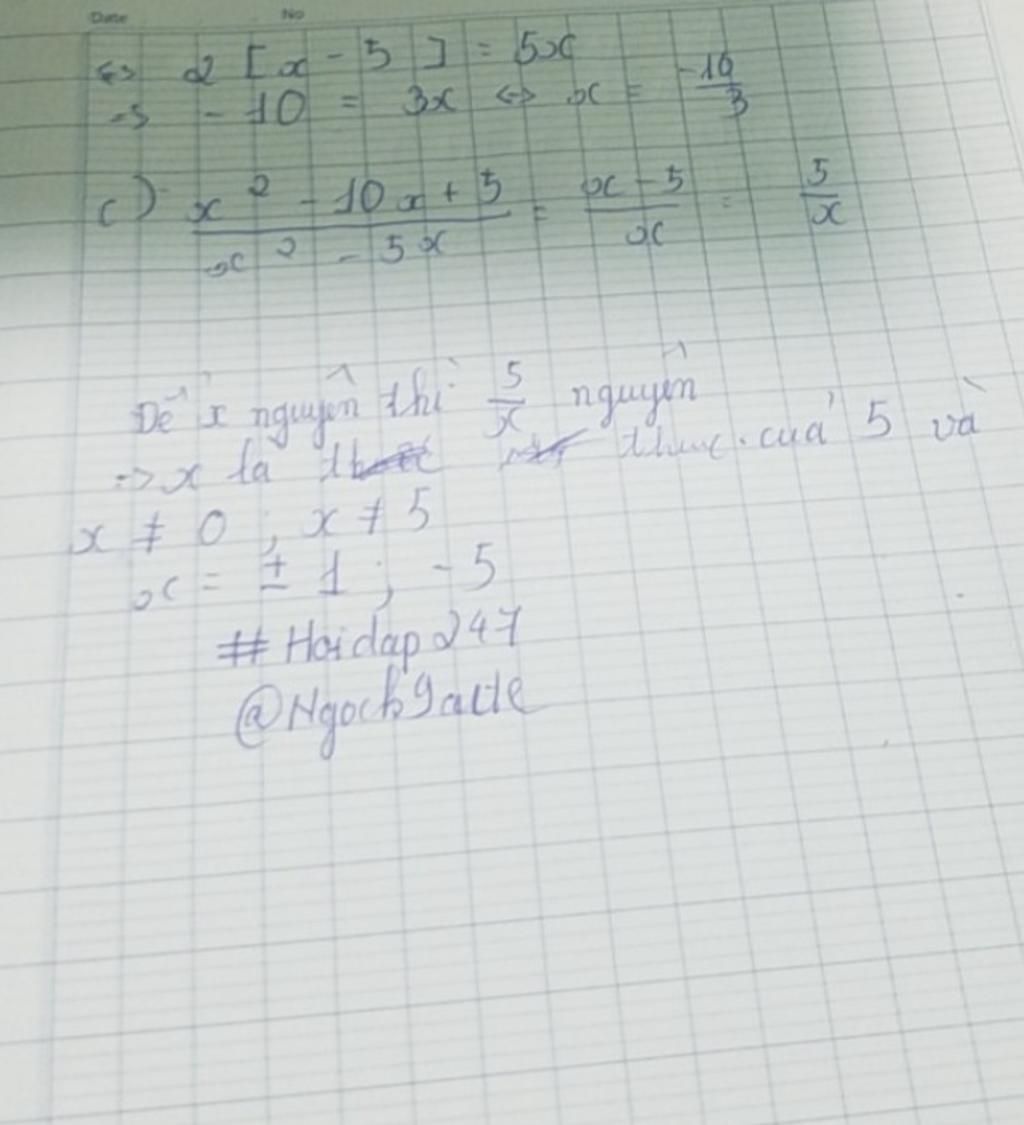 Date No
<=> 2 [x - 5] = 5x
=> - 10 = 3x <=> x = -10/3
c) (x² - 10x + 5)/(x² - 5x) = (x - 5)/x = 5/x
Để x nguyên thì 5/x nguyên
=> x là thuc của 5 và
x ≠ 0 ; x ≠ 5
x = ± 1 ; - 5
#Hoidap247